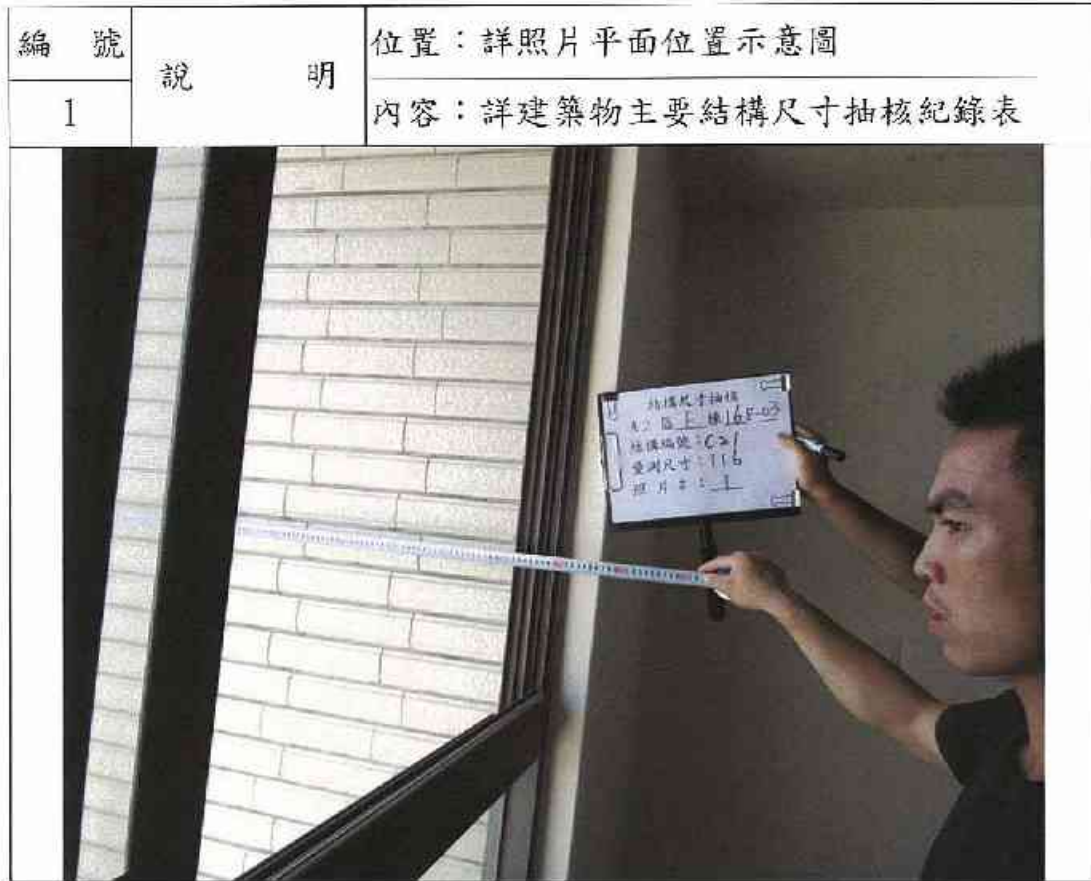 編 號
1
說 明
位置：詳照片平面位置示意圖
內容：詳建築物主要結構尺寸抽核紀錄表
結構尺寸抽核
A2 區 E 棟 16F-03
結構編號：C21
量測尺寸：116
照片#：1